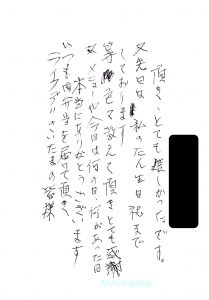 ライフデリさいたまの皆様
いつもお弁当を届けて頂き、
本当にありがとうございます
メニューや今日は何の日・何があった日
等色々教えて頂きとても感謝
しております
又先日は私のたん生日祝まで
頂き、とても嬉しかったです。
ASAHI BANK